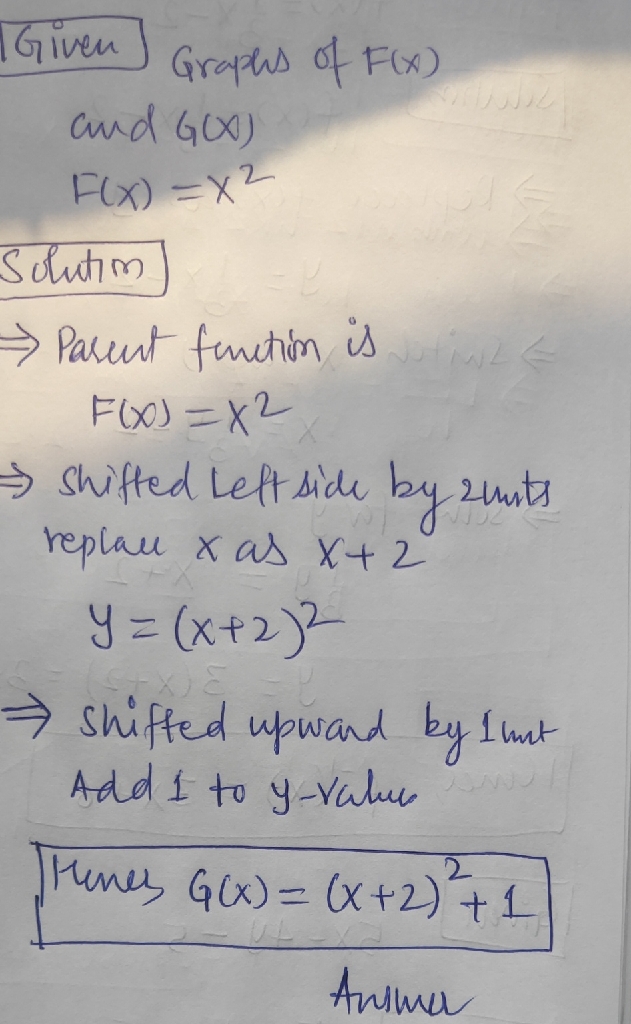 Given Graphs of F(x)
and G(x)
F(x) = x²
Solution
⇒ Parent function is
F(x) = x²
⇒ Shifted Left side by 2 units
replace x as x+2
y = (x+2)²
⇒ Shifted upward by 1 unit
Add 1 to y-values
Hence G(x) = (x+2)² + 1
Answer